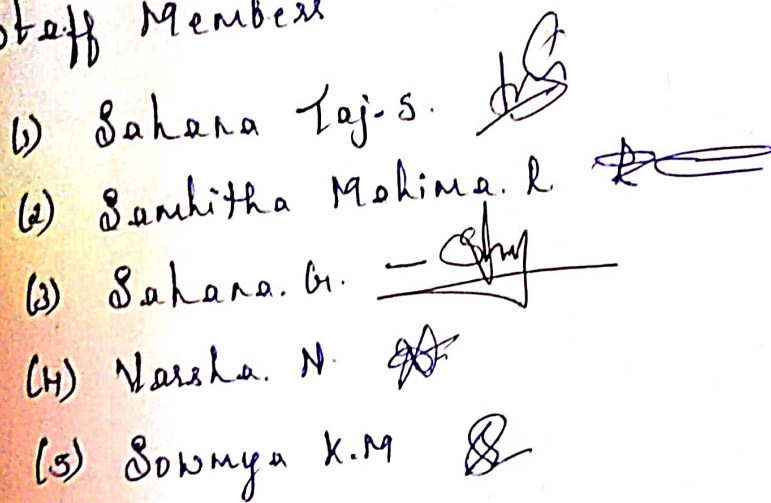 Staff Members
(1) Sahana Taj. S.
(2) Samhitha Mahima. R.
(3) Sahana. G.
(4) Varsha. N.
(5) Sowmya K.M